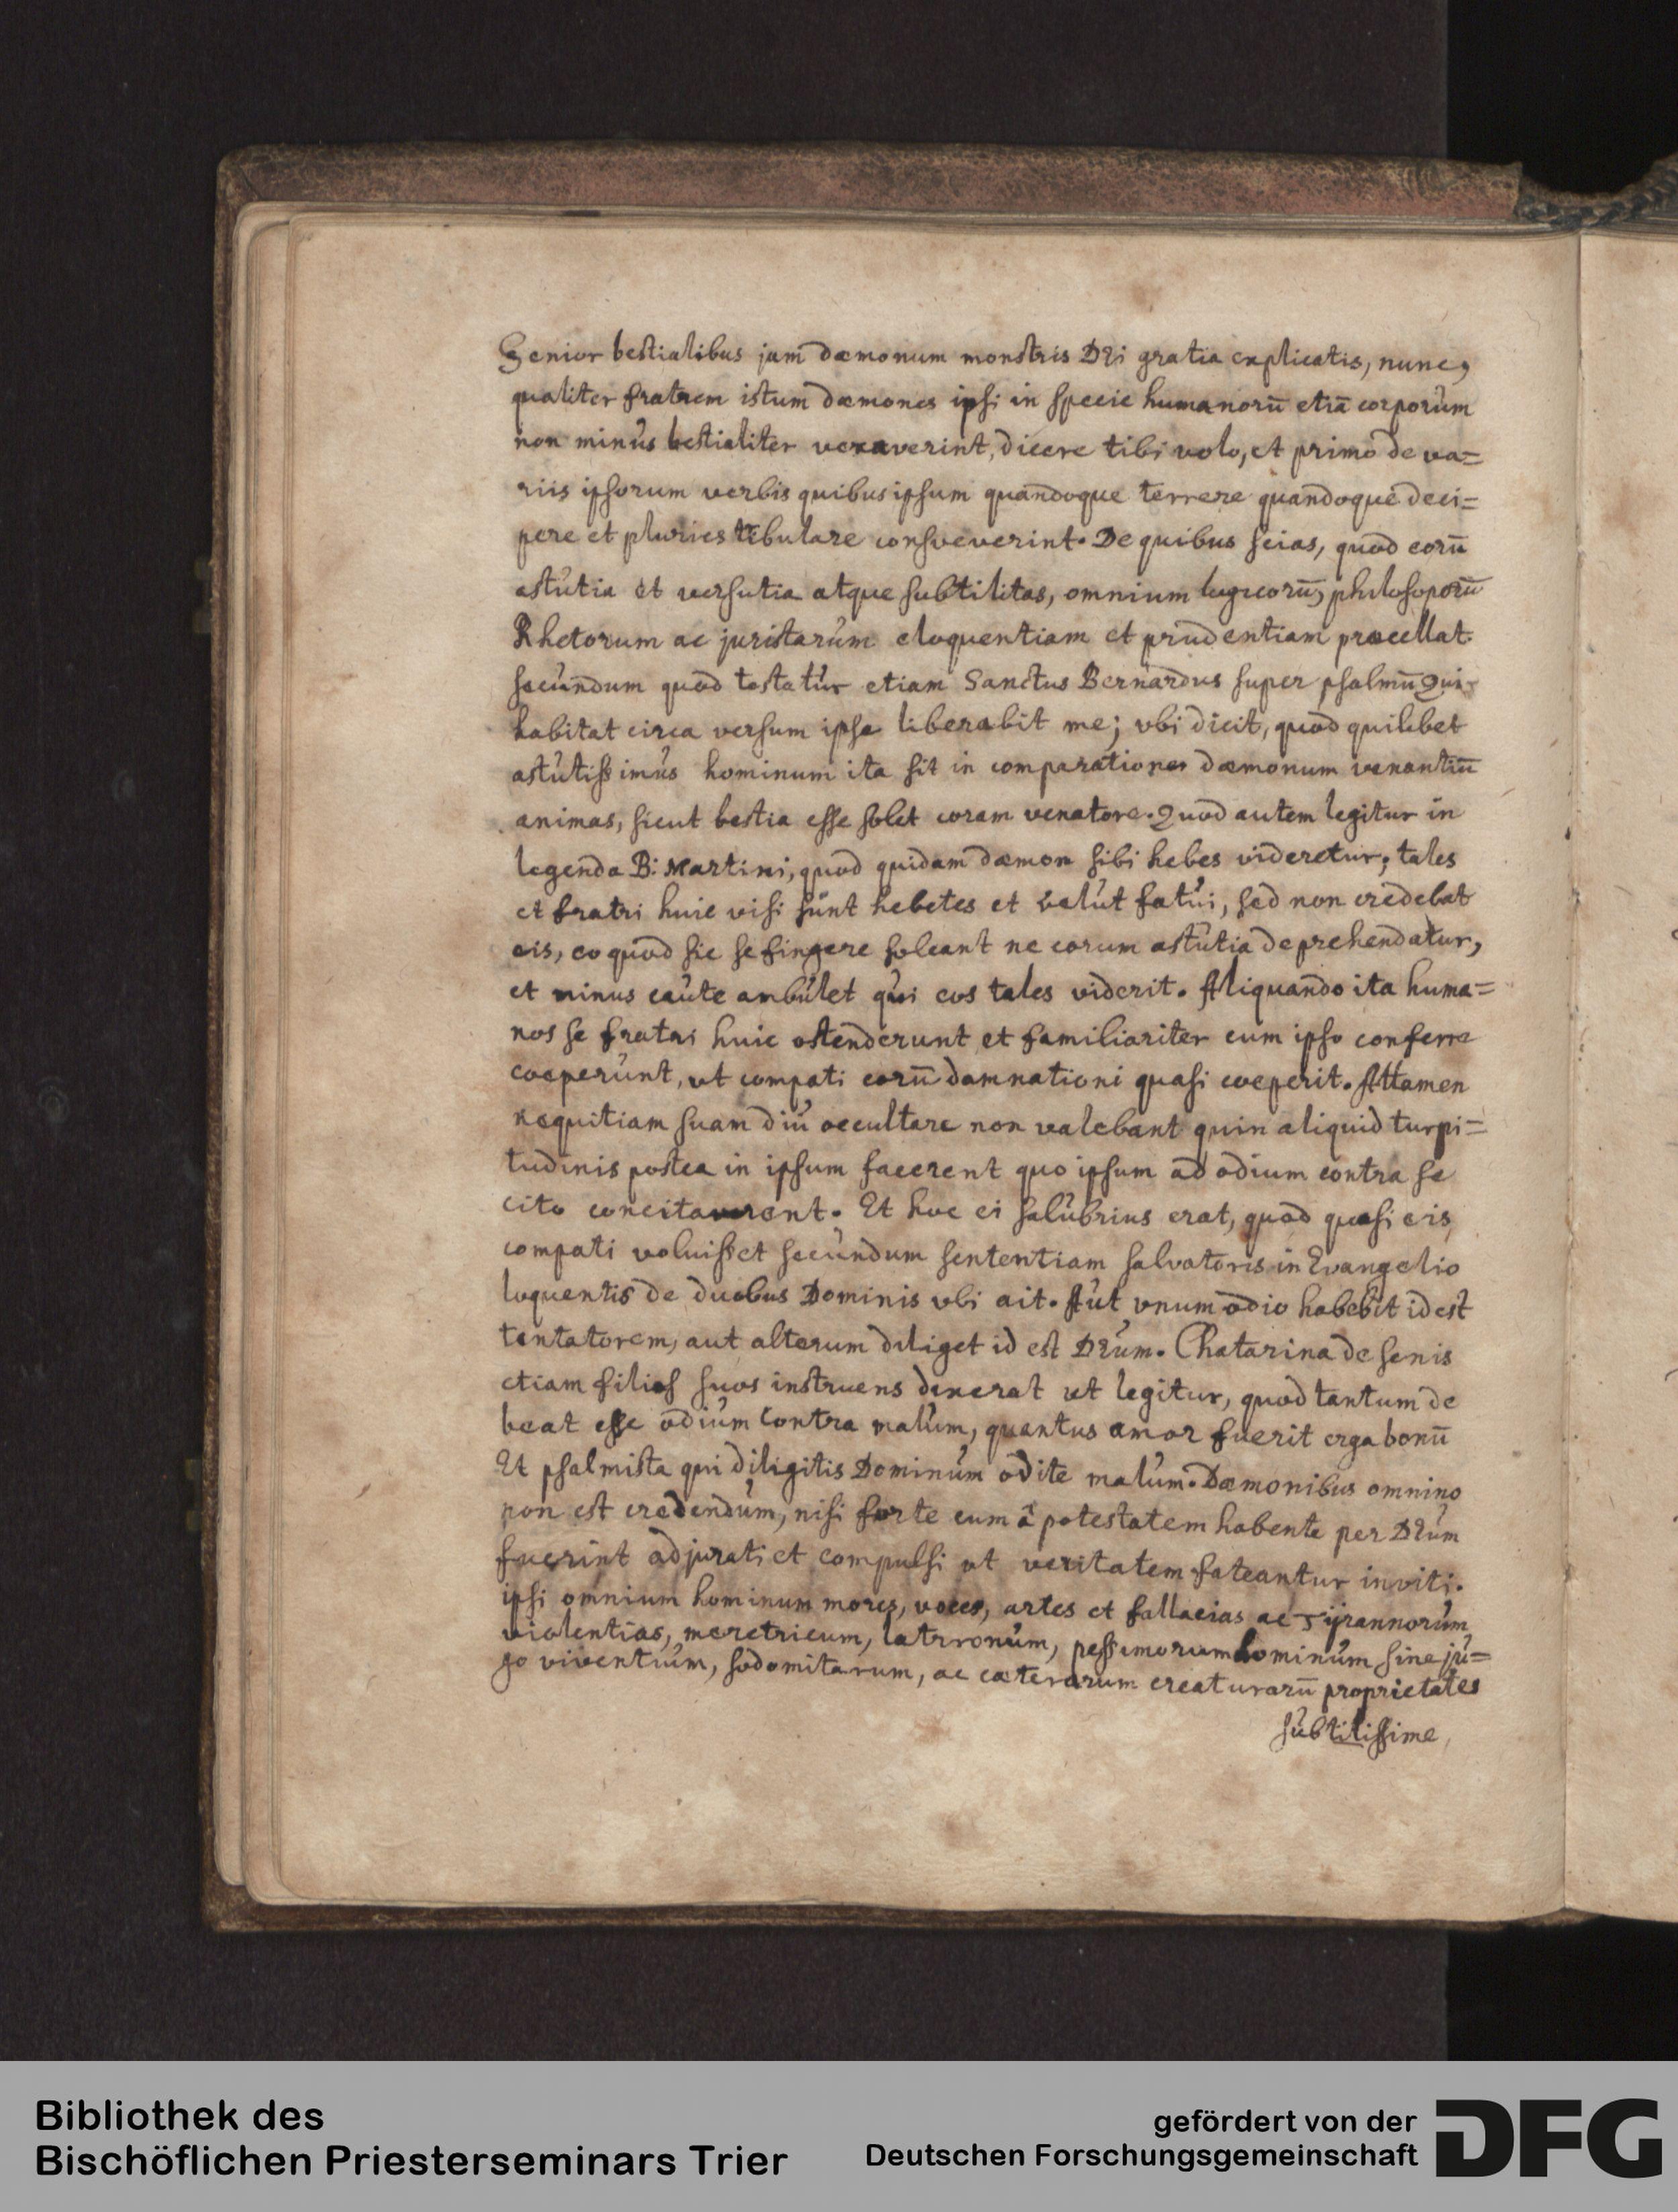 Senior bestialibus jam dæmonum monstris Dei gratia explicatis, nunc,
qualiter fratrem istum dæmones ipsi in specie humanorū etiā corporum
non minus bestialiter vexaverint, dicere tibi volo, et primo de va=
riis ipsorum verbis quibus ipsum quandoque terrere quandoque deci=
pere et pluries tribulare consveverint. De quibus scias, quod eorū
astutia et versutia atque subtilitas, omnium logicorū, philosoporū
Rhetorum ac juristarum eloquentiam et prudentiam præcellat.
secundum quod testatur etiam Sanctus Bernardus super psalmū Qui
habitat circa versum ipse liberabit me; vbi dicit, quod quilibet
astutissimus hominum ita sit in comparatione dæmonum venantiū
animas, sicut bestia esse solet coram venatore. Quod autem legitur in
legenda B: Martini, quod quidam dæmon sibi hebes videretur; tales
et fratri huic visi sunt hebetes et velut fatui, sed non credebat
eis, eo quod sic se fingere soleant ne eorum astutia deprehendatur,
et minus caute ambulet qui eos tales viderit. Aliquando ita huma=
nos se fratri huic ostenderunt et familiariter cum ipso conferre
coeperunt, ut compati eorū damnationi quasi coeperit. Attamen
nequitiam suam diu occultare non valebant quin aliquid turpi=
tudinis postea in ipsum facerent quo ipsum ad odium contra se
cito concitaverent. Et hoc ei salubrius erat, quod quasi eis
compati voluisset secundum sententiam salvatoris in Evangelio
loquentis de duobus Dominis vbi ait. Aut vnum odio habebit id est
tentatorem, aut alterum diliget id est Deum. Chatarina de senis
etiam filios suos instruens dixerat ut legitur, quod tantum de
beat esse odium contra malum, quantus amor fuerit erga bonū
Et psalmista qui diligitis Dominum odite malum. Dæmonibus omnino
non est credendum, nisi forte cum â potestatem habente per Deum
fuerint adjurati et compulsi ut veritatem fateantur inviti.
ipsi omnium hominum mores, voces, artes et fallacias ac Tyrannorum
violentias, meretricum, latrronum, pessimorum hominum sine ju=
go viventium, sodomitarum, ac cæterarum creaturarū proprietates
subtilissime
Bibliothek des
Bischöflichen Priesterseminars Trier
gefördert von der
Deutschen Forschungsgemeinschaft
DFG